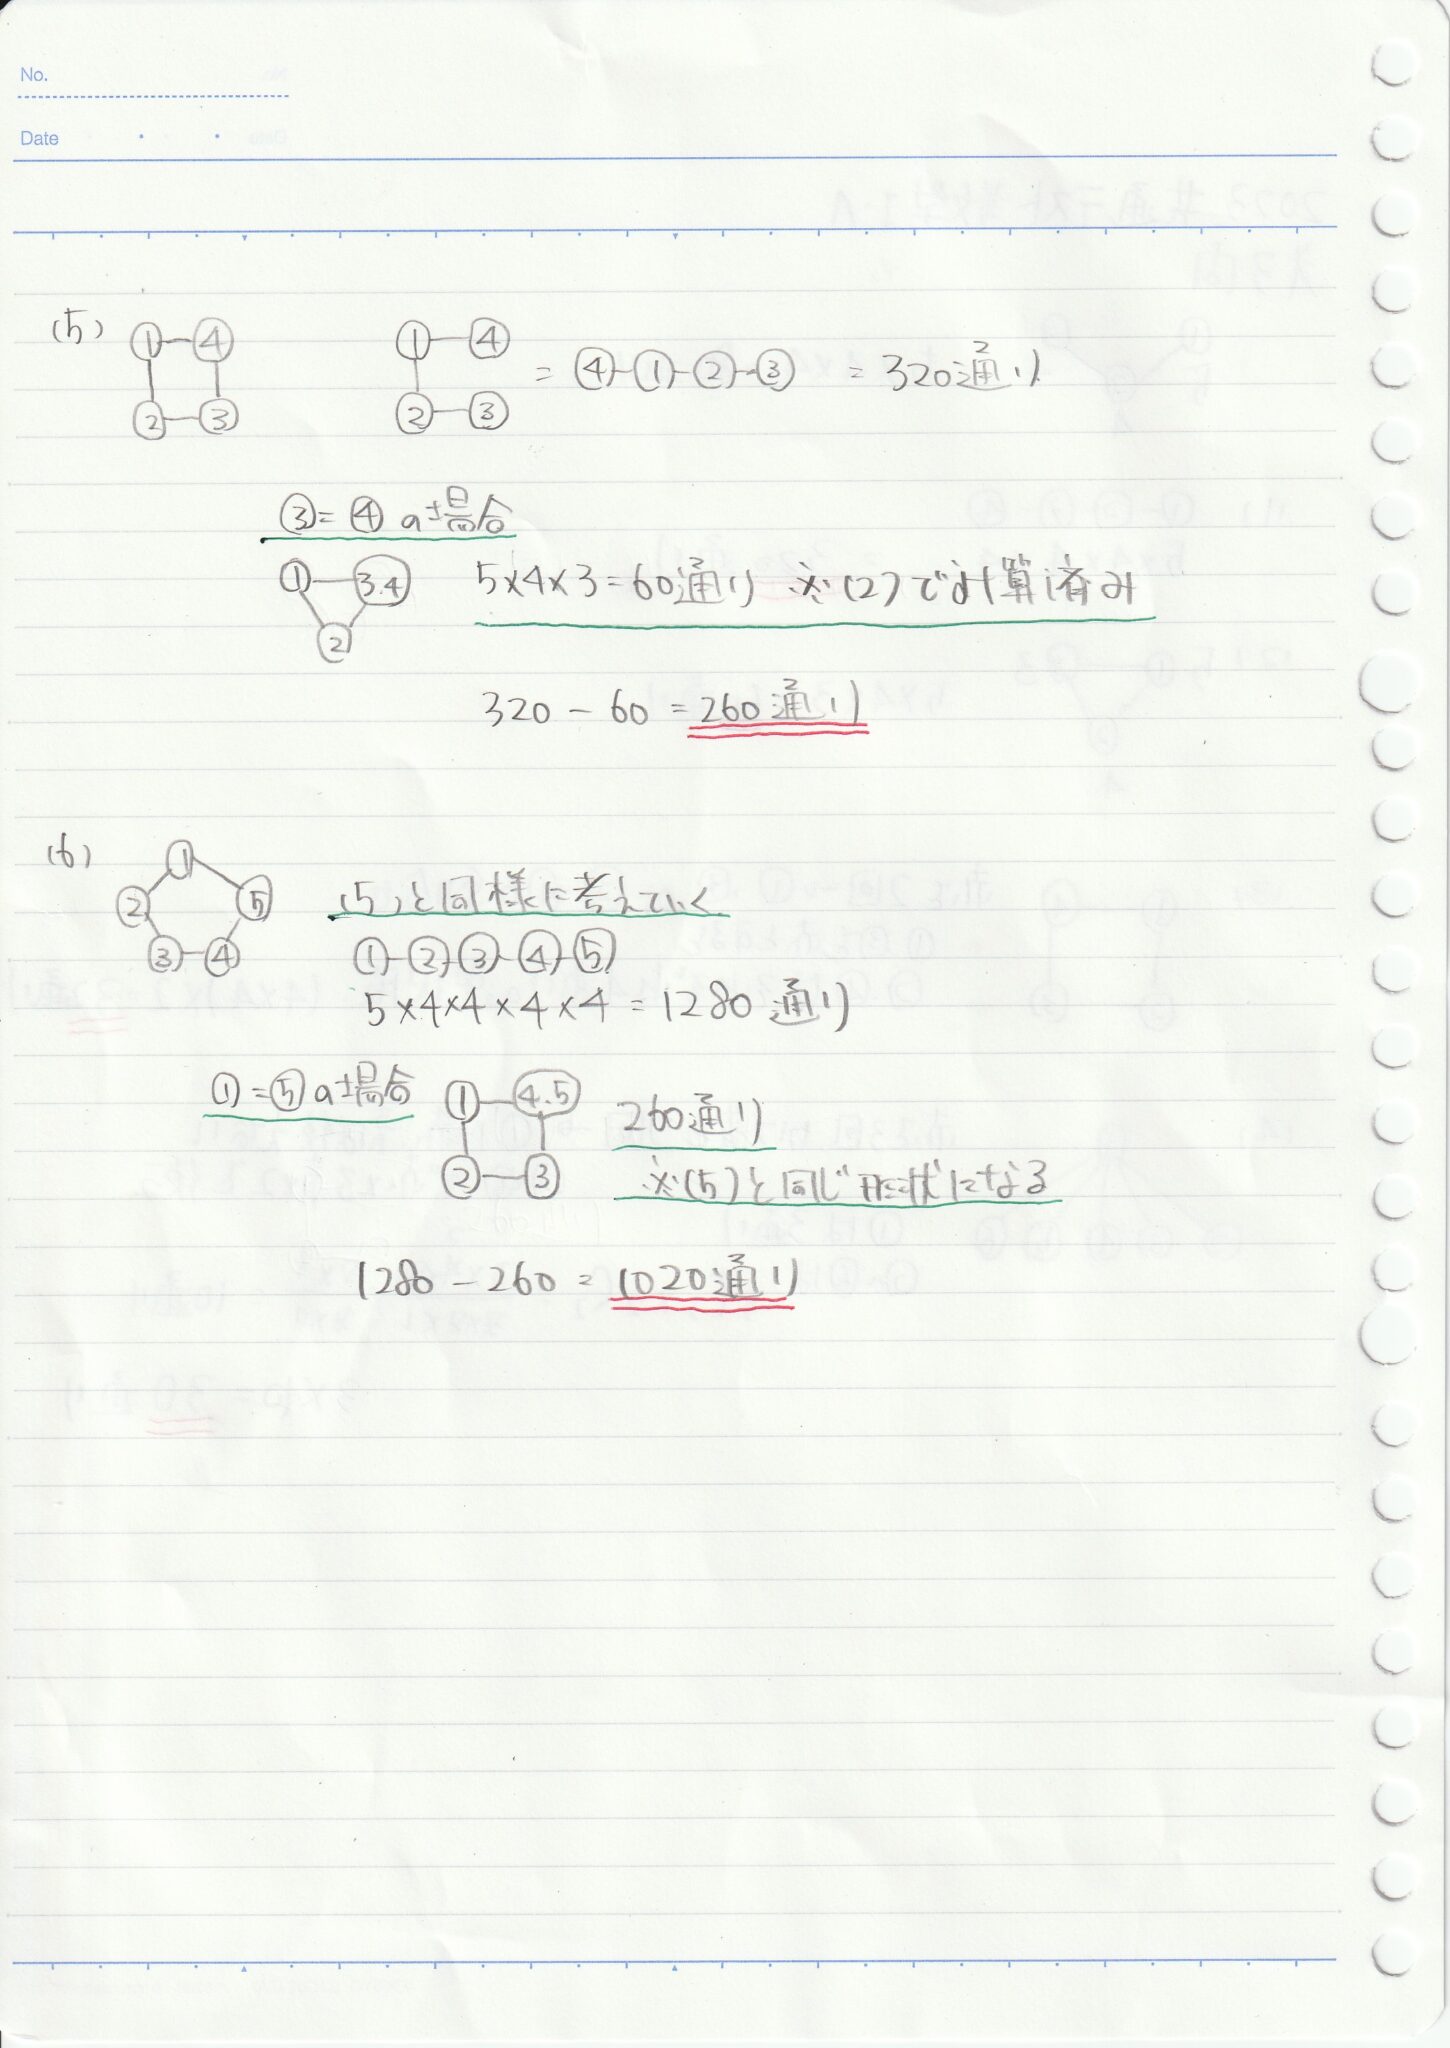 No.
Date
(5) ①-④ ②-③ ①-④ ②-③ = ④-①-②-③ = 320通り
③=④の場合
① 3.4 ② 5×4×3=60通り ※(2)で計算済み
320-60=260通り
(6) ① ② ③ ④ ⑤ (5)と同様に考えていく
①-②-③-④-⑤
5×4×4×4×4=1280通り
①=⑤の場合 ① 4.5 ② ③ 260通り
※(5)と同じ形状になる
1280-260=1020通り